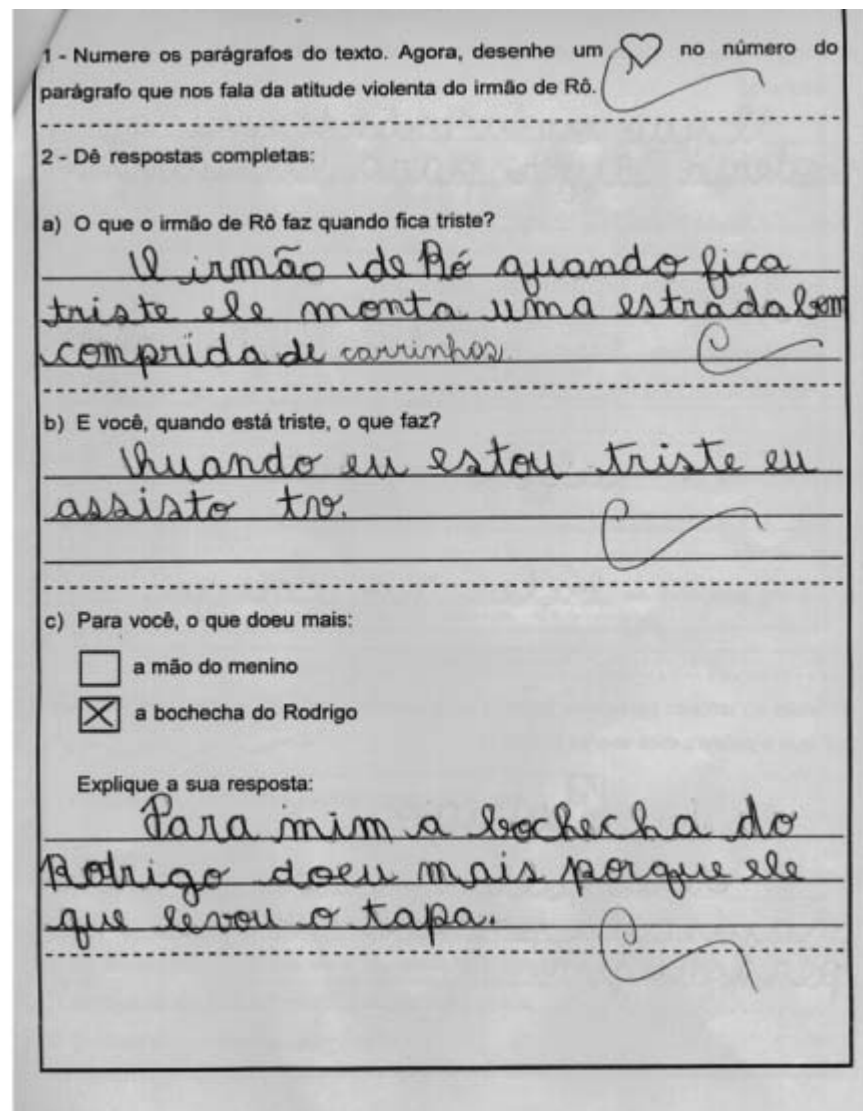 1 - Numere os parágrafos do texto. Agora, desenhe um ♡ no número do
parágrafo que nos fala da atitude violenta do irmão de Rô.
2 - Dê respostas completas:
a) O que o irmão de Rô faz quando fica triste?
O irmão de Rô quando fica
triste ele monta uma estrada bem
comprida de carrinhos.
b) E você, quando está triste, o que faz?
Quando eu estou triste eu
assisto tv.
c) Para você, o que doeu mais:
a mão do menino
a bochecha do Rodrigo
Explique a sua resposta:
Para mim a bochecha do
Rodrigo doeu mais porque ele
que levou o tapa.